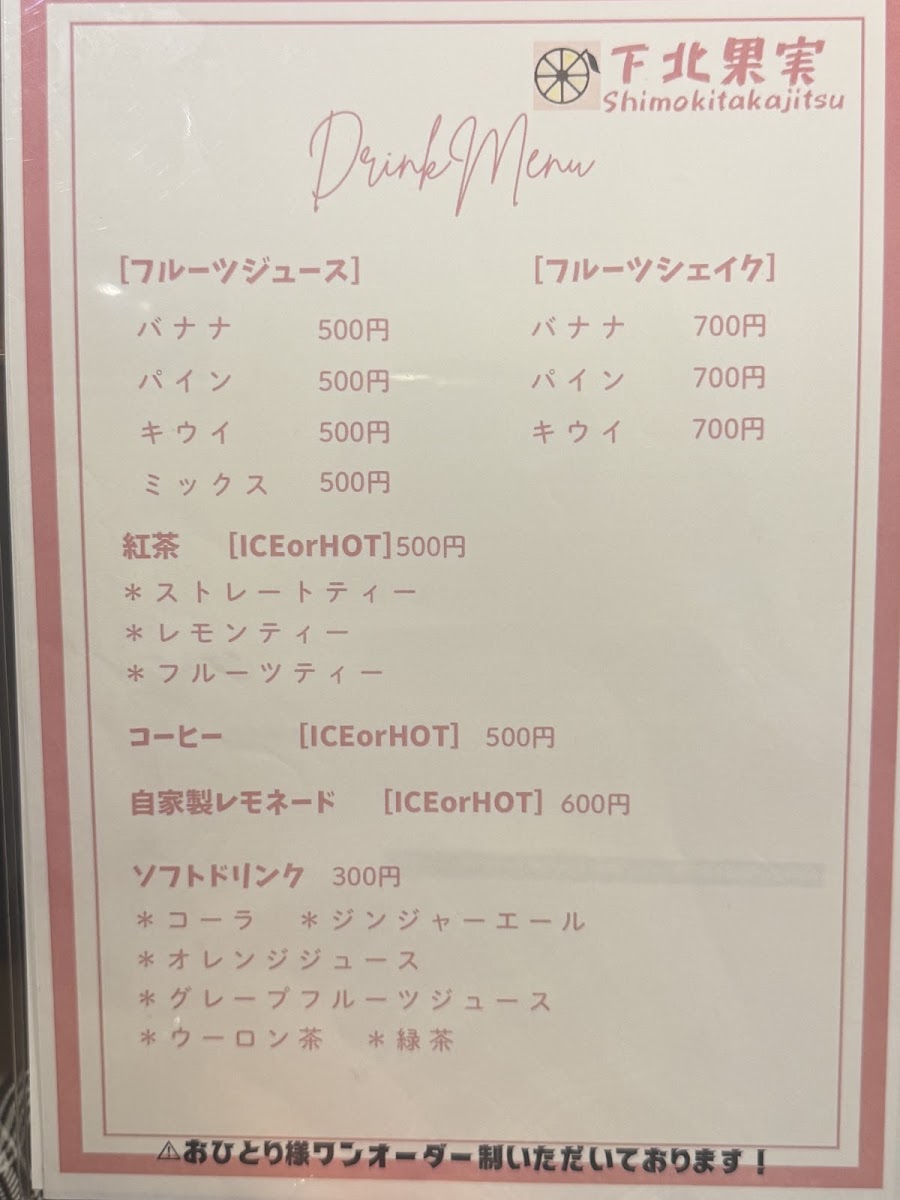 下北果実
Shimokitakajitsu
Drink Menu
[フルーツジュース]
バナナ 500円
パイン 500円
キウイ 500円
ミックス 500円
[フルーツシェイク]
バナナ 700円
パイン 700円
キウイ 700円
紅茶 [ICEorHOT]500円
＊ストレートティー
＊レモンティー
＊フルーツティー
コーヒー [ICEorHOT] 500円
自家製レモネード [ICEorHOT] 600円
ソフトドリンク 300円
＊コーラ ＊ジンジャーエール
＊オレンジジュース
＊グレープフルーツジュース
＊ウーロン茶 ＊緑茶
⚠おひとり様ワンオーダー制いただいております！